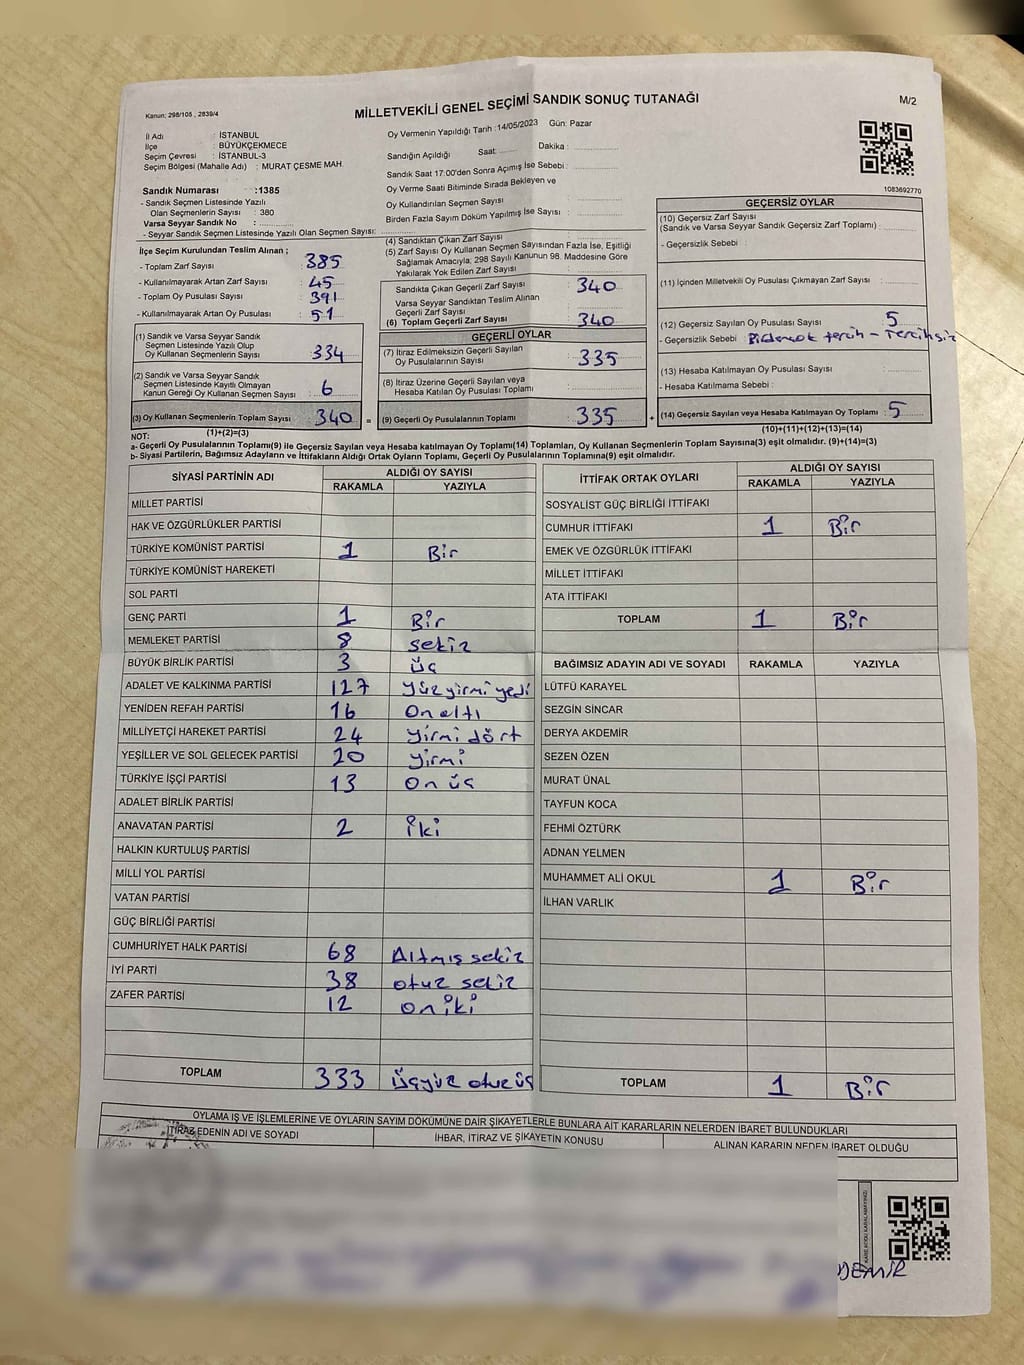 Kanun: 298/105 , 2839/4
MİLLETVEKİLİ GENEL SEÇİMİ SANDIK SONUÇ TUTANAĞI
M/2
İl Adı : İSTANBUL
İlçe : BÜYÜKÇEKMECE
Seçim Çevresi : İSTANBUL-3
Seçim Bölgesi (Mahalle Adı) : MURAT ÇESME MAH.
Sandık Numarası :1385
- Sandık Seçmen Listesinde Yazılı
Olan Seçmenlerin Sayısı : 380
Varsa Seyyar Sandık No :
- Seyyar Sandık Seçmen Listesinde Yazılı Olan Seçmen Sayısı:
Oy Vermenin Yapıldığı Tarih :14/05/2023 Gün: Pazar
Sandığın Açıldığı Saat: Dakika :
Sandık Saat 17:00'den Sonra Açımış İse Sebebi :
Oy Verme Saati Bitiminde Sırada Bekleyen ve
Oy Kullandırılan Seçmen Sayısı :
Birden Fazla Sayım Döküm Yapılmış İse Sayısı :
1083692770
İlçe Seçim Kurulundan Teslim Alınan ;
- Toplam Zarf Sayısı : 385
- Kullanılmayarak Artan Zarf Sayısı : 45
- Toplam Oy Pusulası Sayısı : 391
- Kullanılmayarak Artan Oy Pusulası : 51
(1) Sandık ve Varsa Seyyar Sandık
Seçmen Listesinde Yazılı Olup
Oy Kullanan Seçmenlerin Sayısı : 334
(2) Sandık ve Varsa Seyyar Sandık
Seçmen Listesinde Kayıtlı Olmayan
Kanun Gereği Oy Kullanan Seçmen Sayısı : 6
(3) Oy Kullanan Seçmenlerin Toplam Sayısı : 340 =
(1)+(2)=(3)
(4) Sandıktan Çıkan Zarf Sayısı :
(5) Zarf Sayısı Oy Kullanan Seçmen Sayısından Fazla İse, Eşitliği
Sağlamak Amacıyla; 298 Sayılı Kanunun 98. Maddesine Göre
Yakılarak Yok Edilen Zarf Sayısı :
Sandıkta Çıkan Geçerli Zarf Sayısı : 340
Varsa Seyyar Sandıktan Teslim Alınan
Geçerli Zarf Sayısı :
(6) Toplam Geçerli Zarf Sayısı : 340
GEÇERLİ OYLAR
(7) İtiraz Edilmeksizin Geçerli Sayılan
Oy Pusulalarının Sayısı : 335
(8) İtiraz Üzerine Geçerli Sayılan veya
Hesaba Katılan Oy Pusulası Toplamı :
(9) Geçerli Oy Pusulalarının Toplamı : 335 +
GEÇERSİZ OYLAR
(10) Geçersiz Zarf Sayısı
(Sandık ve Varsa Seyyar Sandık Geçersiz Zarf Toplamı) :
- Geçersizlik Sebebi :
(11) İçinden Milletvekili Oy Pusulası Çıkmayan Zarf Sayısı :
(12) Geçersiz Sayılan Oy Pusulası Sayısı : 5
- Geçersizlik Sebebi : Birdençok tercih - Tercihsiz
(13) Hesaba Katılmayan Oy Pusulası Sayısı :
- Hesaba Katılmama Sebebi :
(14) Geçersiz Sayılan veya Hesaba Katılmayan Oy Toplamı : 5
(10)+(11)+(12)+(13)=(14)
NOT:
a- Geçerli Oy Pusulalarının Toplamı(9) ile Geçersiz Sayılan veya Hesaba katılmayan Oy Toplamı(14) Toplamları, Oy Kullanan Seçmenlerin Toplam Sayısına(3) eşit olmalıdır. (9)+(14)=(3)
b- Siyasi Partilerin, Bağımsız Adayların ve İttifakların Aldığı Ortak Oyların Toplamı, Geçerli Oy Pusulalarının Toplamına(9) eşit olmalıdır.
SİYASİ PARTİNİN ADI ALDIĞI OY SAYISI
RAKAMLA YAZIYLA
MİLLET PARTİSİ
HAK VE ÖZGÜRLÜKLER PARTİSİ
TÜRKİYE KOMÜNİST PARTİSİ 1 Bir
TÜRKİYE KOMÜNİST HAREKETİ
SOL PARTİ
GENÇ PARTİ 1 Bir
MEMLEKET PARTİSİ 8 sekiz
BÜYÜK BİRLİK PARTİSİ 3 üç
ADALET VE KALKINMA PARTİSİ 127 yüzyirmiyedi
YENİDEN REFAH PARTİSİ 16 Onaltı
MİLLİYETÇİ HAREKET PARTİSİ 24 yirmi dört
YEŞİLLER VE SOL GELECEK PARTİSİ 20 yirmi
TÜRKİYE İŞÇİ PARTİSİ 13 On üç
ADALET BİRLİK PARTİSİ
ANAVATAN PARTİSİ 2 iki
HALKIN KURTULUŞ PARTİSİ
MİLLİ YOL PARTİSİ
VATAN PARTİSİ
GÜÇ BİRLİĞİ PARTİSİ
CUMHURİYET HALK PARTİSİ 68 Altmış sekiz
İYİ PARTİ 38 otuz sekiz
ZAFER PARTİSİ 12 on iki
TOPLAM 333 üçyüz otuz üç
İTTİFAK ORTAK OYLARI ALDIĞI OY SAYISI
RAKAMLA YAZIYLA
SOSYALİST GÜÇ BİRLİĞİ İTTİFAKI
CUMHUR İTTİFAKI 1 Bir
EMEK VE ÖZGÜRLÜK İTTİFAKI
MİLLET İTTİFAKI
ATA İTTİFAKI
TOPLAM 1 Bir
BAĞIMSIZ ADAYIN ADI VE SOYADI RAKAMLA YAZIYLA
LÜTFÜ KARAYEL
SEZGİN SİNCAR
DERYA AKDEMİR
SEZEN ÖZEN
MURAT ÜNAL
TAYFUN KOCA
FEHMİ ÖZTÜRK
ADNAN YELMEN
MUHAMMET ALİ OKUL 1 Bir
İLHAN VARLIK
TOPLAM 1 Bir
OYLAMA İŞ VE İŞLEMLERİNE VE OYLARIN SAYIM DÖKÜMÜNE DAİR ŞİKAYETLERLE BUNLARA AİT KARARLARIN NELERDEN İBARET BULUNDUKLARI
İTİRAZ EDENİN ADI VE SOYADI İHBAR, İTİRAZ VE ŞİKAYETİN KONUSU ALINAN KARARIN NEDEN İBARET OLDUĞU
DEMİR